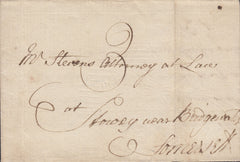 3
Mr Stevens Attorney at Law
at
Stowey near Bridgewr
Somersett